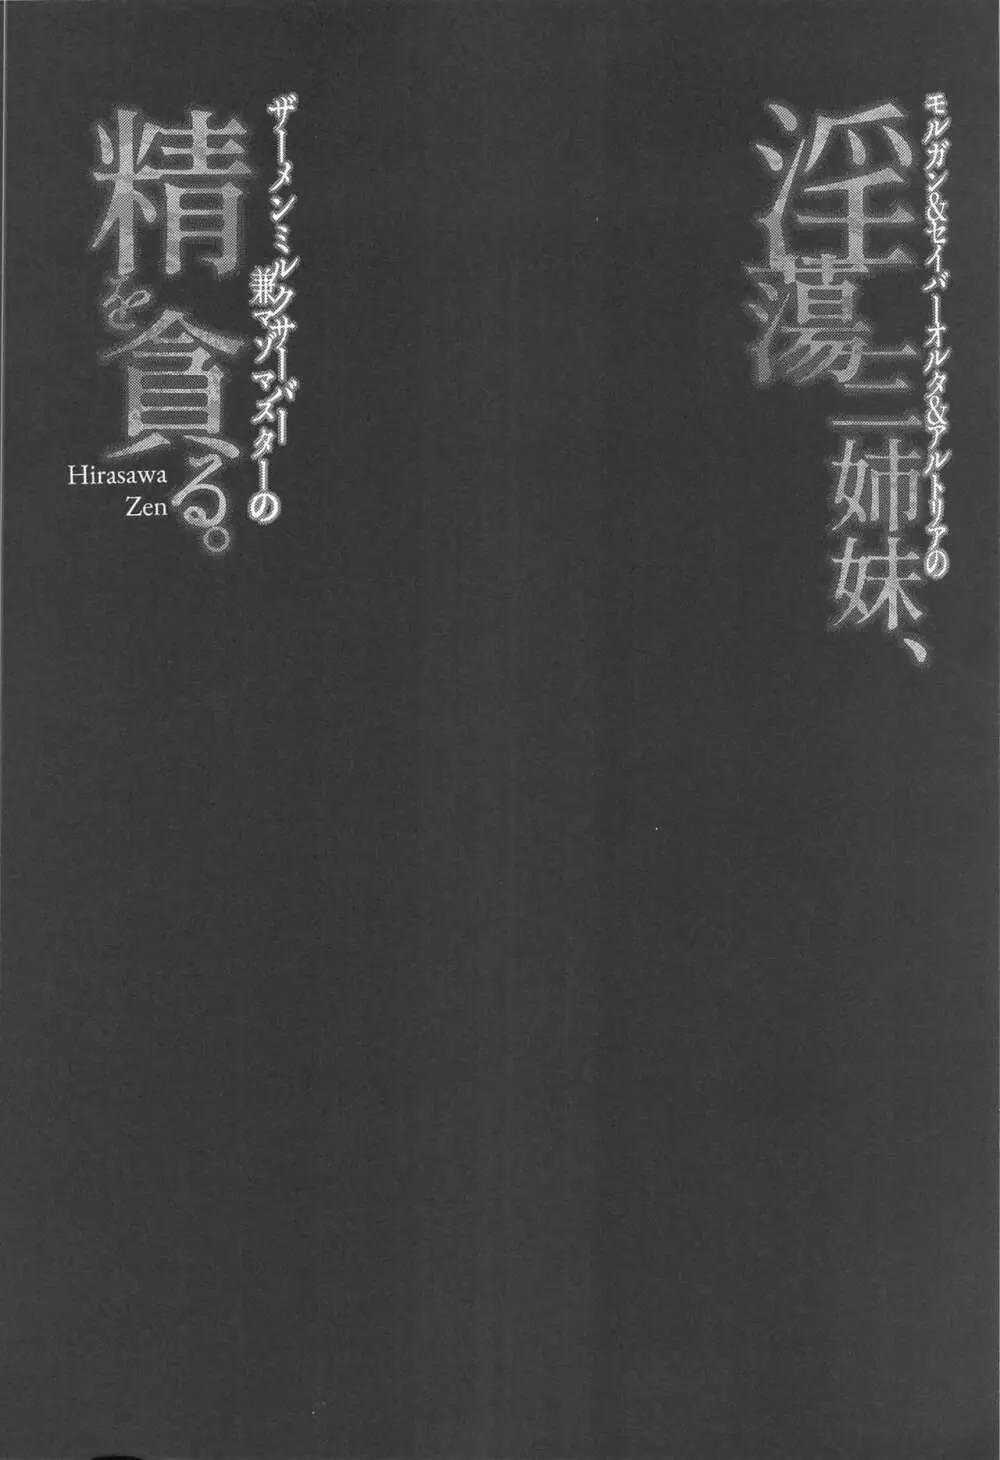 モルガン&セイバーオルタ&アルトリアの
淫蕩三姉妹、
ザーメンミルクサーバーの
兼マゾマスターの
精を貪る。
Hirasawa
Zen